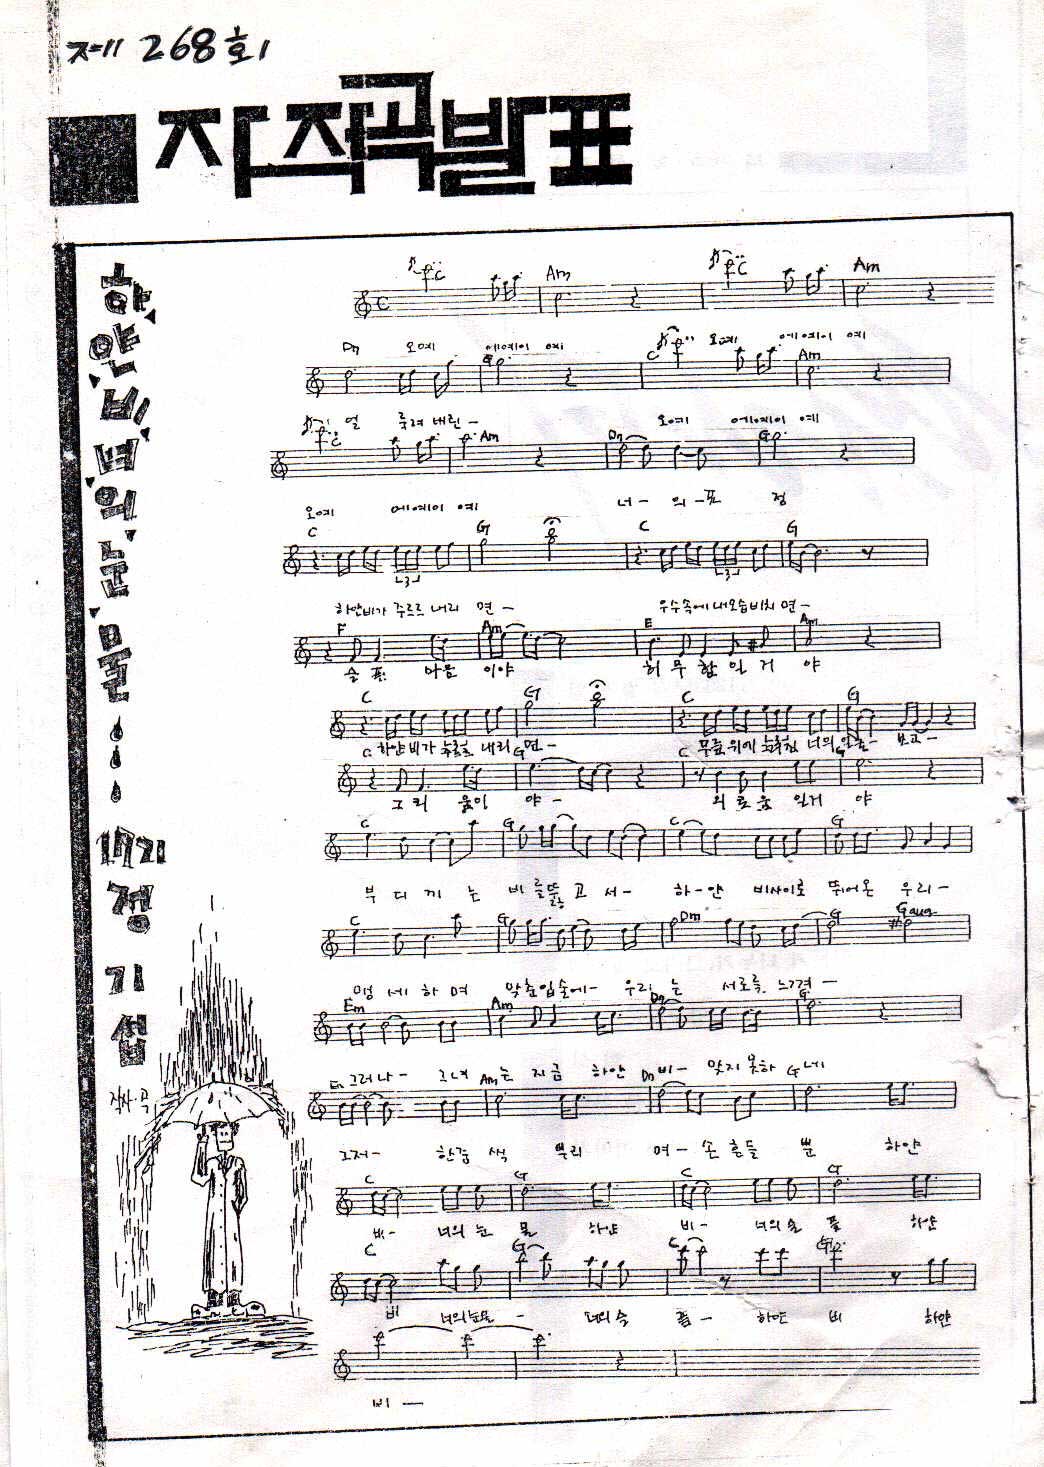 제 268회
자작곡발표
하얀비너의눈물
17기
정기섭
작사·곡
C Am C Am
Dm 오예 에예이 예 오예 에예이 예
G C Am
얼 룩져 버린- 오예 에예이 예
C Am Dm G
오예 에예이 예 너- 의-표 정
C G C G
3 3
하얀비가 주르르 내리 면- 우수속에 내모습비치 면-
F Am E Am
슬 픔 마음 이야 허 무 함 일 거 야
C G C G
C 하얀비가 내리 G면- C 무릎위에 너의 보고-
그 리 움이 야- 외 로 움 일거 야
C G C G
부 디 끼 는 비를뚫 고 서- 하-얀 비사이로 뛰어온 우리-
C G Dm G Gaug
맹 세 하 며 맞춘입술에- 우리 는 서로를 느껴-
Em Am Dm G
Em 그러나- 그녀 Am는 지금 하얀 Dm비- 맞지 못하 G네
그저- 한줌 씩 뿌리 며- 손 흔들 뿐 하얀
C G C G
비- 너의 눈 물 하얀 비- 너의 슬 픔 하얀
C G C G
비 너의눈물- 너의 슬 픔- 하얀 비 하얀
비-